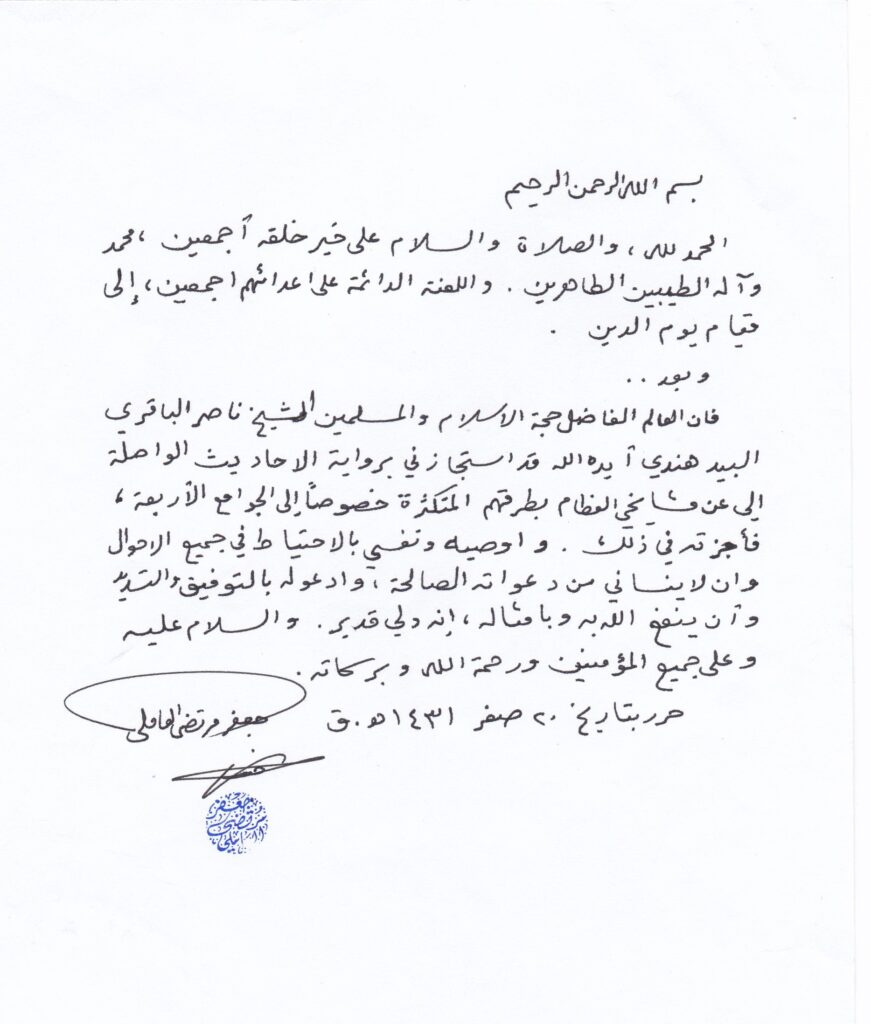 بسم الله الرحمن الرحيم
الحمد لله ، والصلاة والسلام على خير خلقه أجمعين ، محمد
وآله الطيبين الطاهرين . واللعنة الدائمة على اعدائهم اجمعين ، إلى
قيام يوم الدين .
وبعد ..
فان العالم الفاضل حجة الاسلام والمسلمين الشيخ ناصر الباقري
البيد هندي أيده الله قد استجازني برواية الاحاديث الواصلة
إلي عن مشايخي العظام بطرقهم المتكثرة خصوصاً إلى الجوامع الأربعة ،
فأجزته في ذلك . واوصيه ونفسي بالاحتياط في جميع الاحوال
وان لا ينساني من دعواته الصالحة ، وادعو له بالتوفيق والتسديد
وأن ينفع الله به وبامثاله ، إنه ولي قدير . والسلام عليه
وعلى جميع المؤمنين ورحمة الله وبركاته .
حرر بتاريخ ٢٠ صفر ١٤٣١ هـ . ق جعفر مرتضى العاملي
جعفر
مرتضى
العاملي